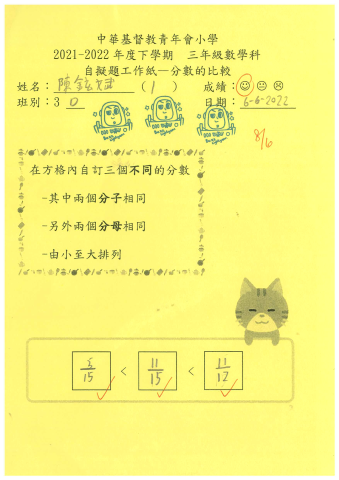 中華基督教青年會小學
2021-2022 年度下學期 三年級數學科
自擬題工作紙—分數的比較
姓名： 陳 ( 1 ) 成績：
班別：3 D 日期：6-6-2022
8/6
在方格內自訂三個不同的分數
-其中兩個分子相同
-另外兩個分母相同
-由小至大排列
/15 < 11/15 < 11/12